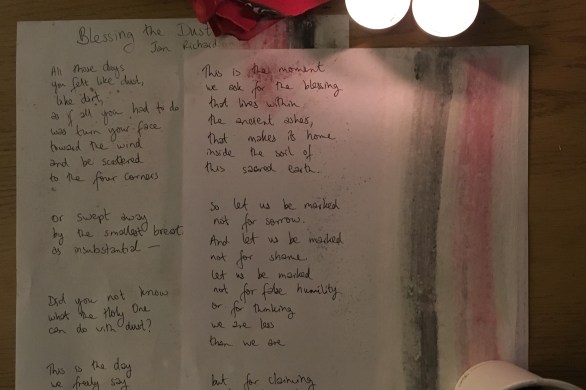 Blessing the Dust
Jan Richard
All those days
you felt like dust,
like dirt,
as if all you had to do
was turn your face
toward the wind
and be scattered
to the four corners
or swept away
by the smallest breath
as insubstantial —
Did you not know
what the Holy One
can do with dust?
This is the day
we freely say
This is the moment
we ask for the blessing
that lives within
the ancient ashes,
that makes its home
inside the soil of
this sacred earth.
So let us be marked
not for sorrow.
And let us be marked
not for shame
let us be marked
not for false humility
or for thinking
we are less
than we are
but for claiming